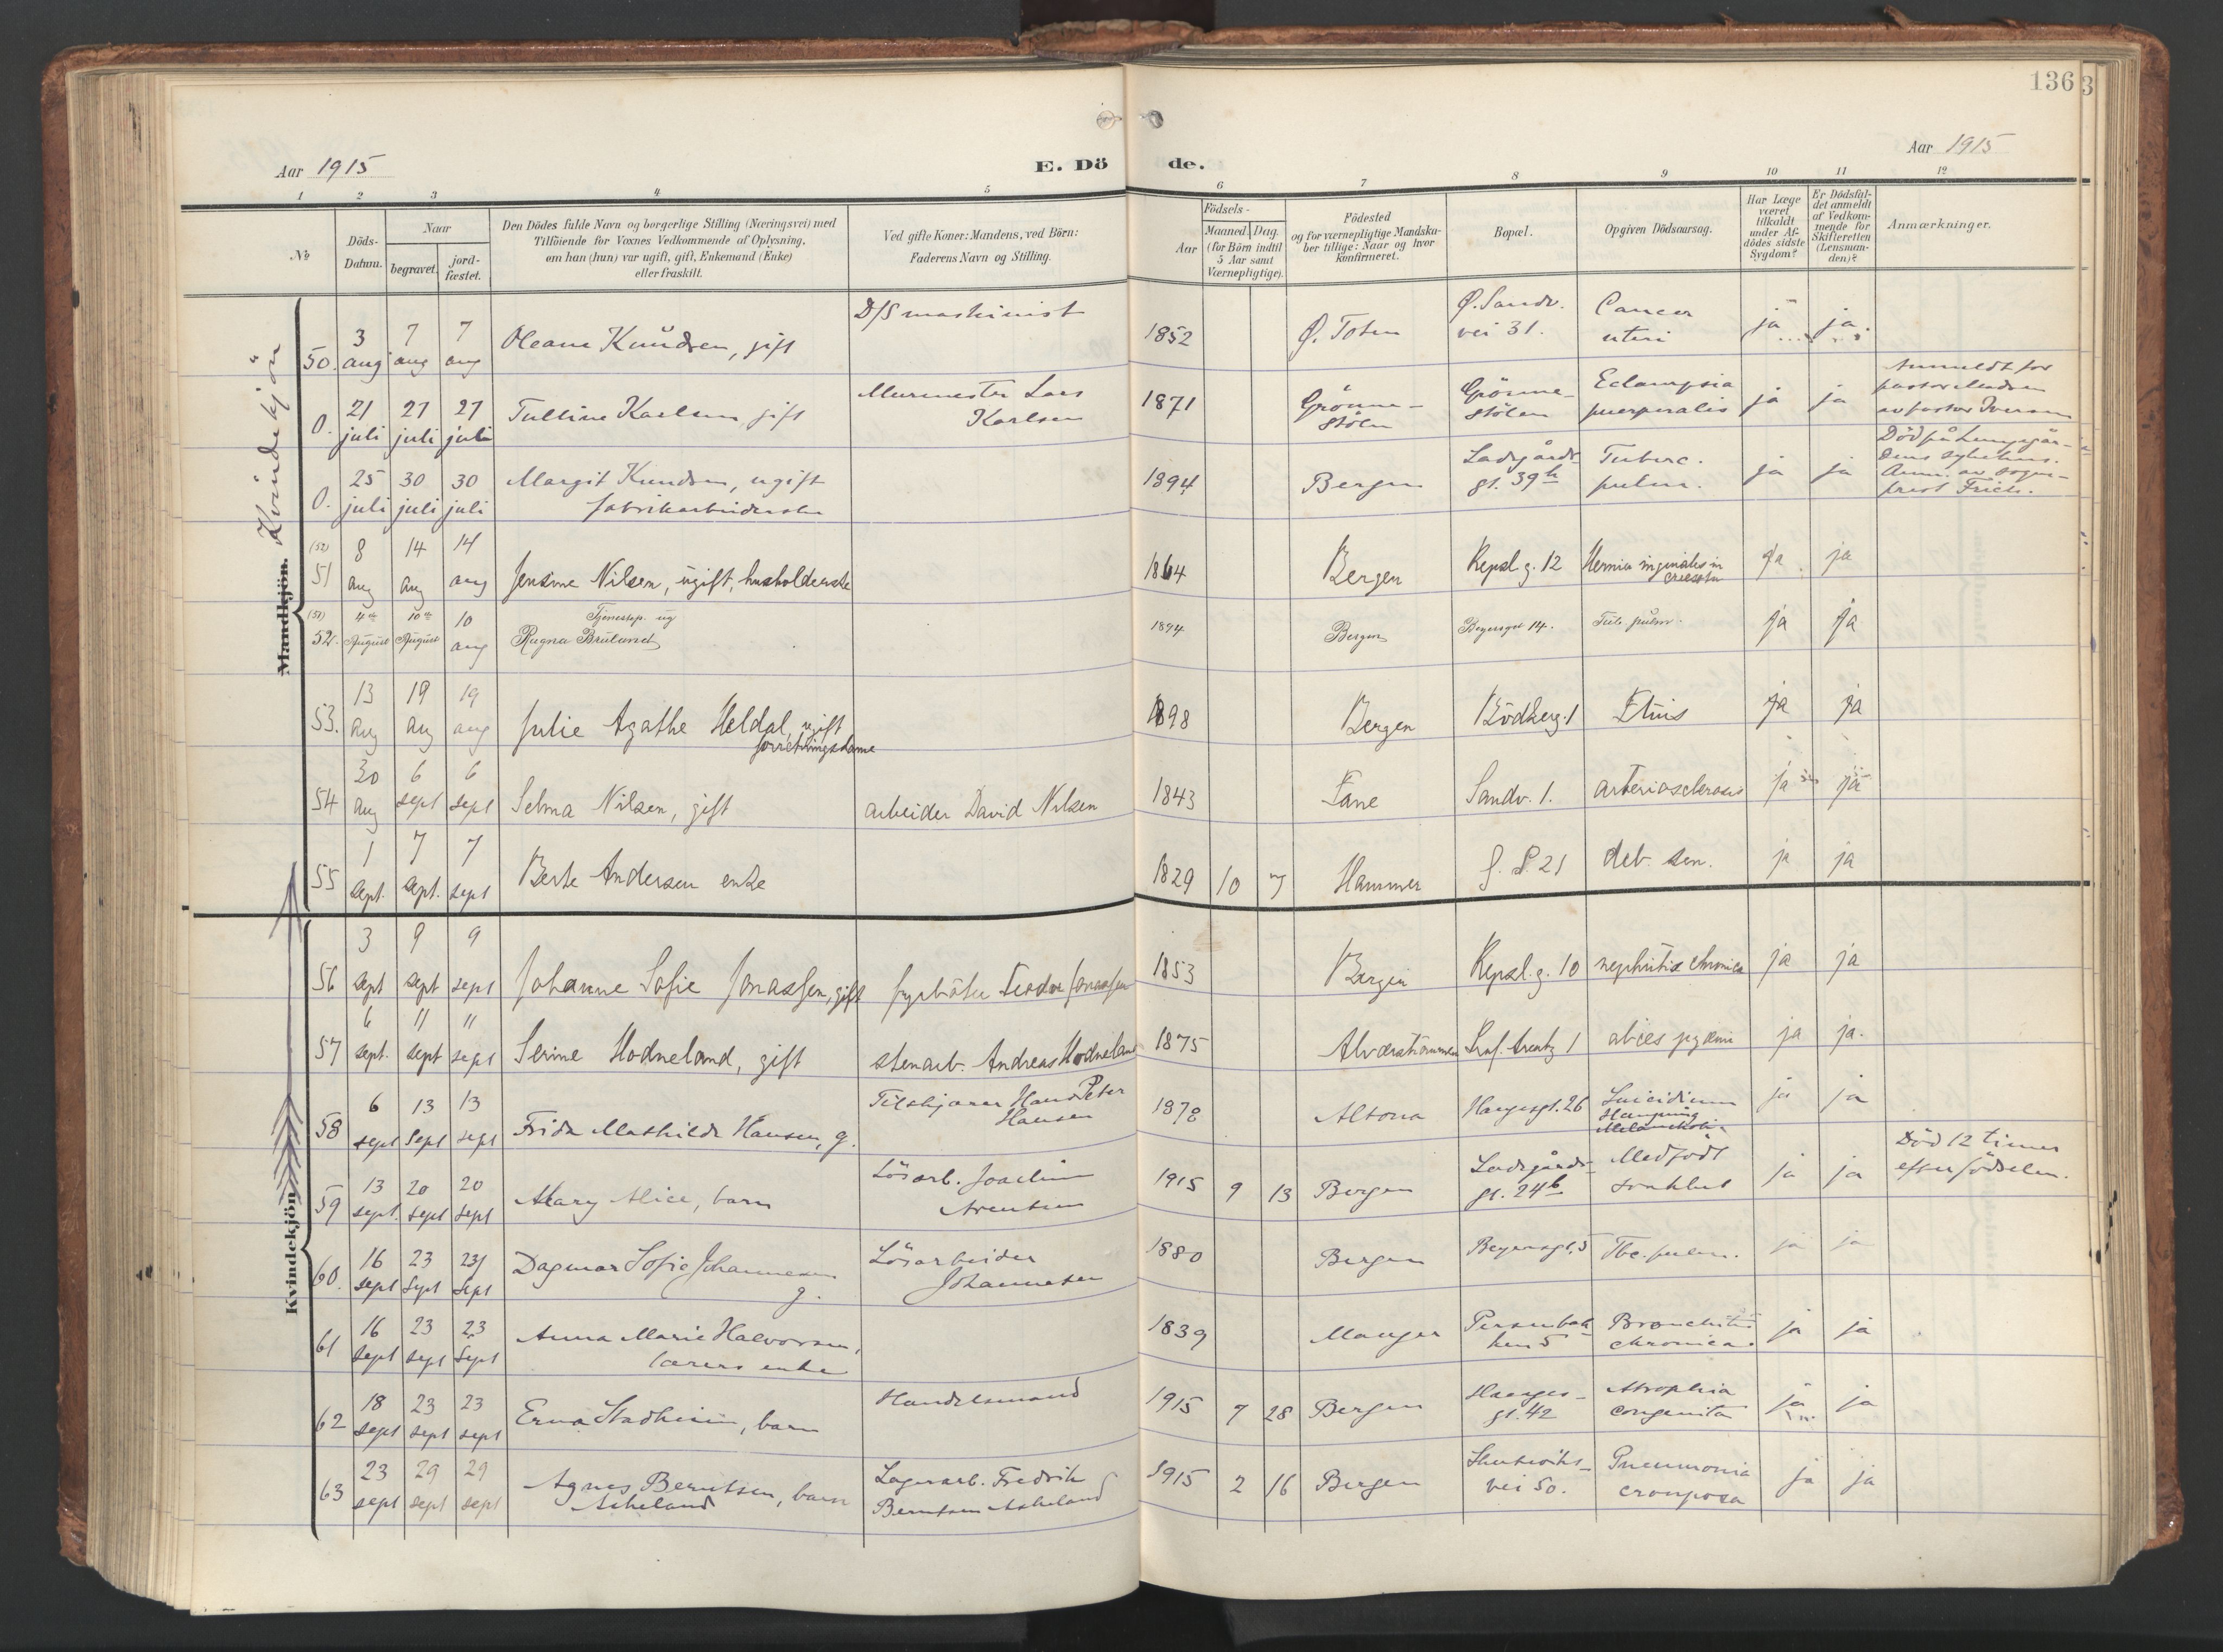 136
3
Aar 1915
E. Dö
de.
Aar 1915
1 2 3 4 5 6 7 8 9 10 11 12
№
Döds-
Datum.
Naar
begravet.
jord-
fæstet.
Den Dödes fulde Navn og borgerlige Stilling (Næringsvei) med
Tilföiende for Voxnes Vedkommende af Oplysning,
om han (hun) var ugift, gift, Enkemand (Enke)
eller fraskilt.
Ved gifte Koner: Mandens, ved Börn:
Faderens Navn og Stilling.
Födsels-
Aar
Maaned. Dag.
(for Börn indtil
5 Aar samt
Værnepligtige).
Födested
og for værnepligtige Mandska-
ber tillige: Naar og hvor
Konfirmeret.
Bopæl.
Opgiven Dödsaarsag.
Har Læge
været
tilkaldt
under Af-
dödes sidste
Sygdom?
Er Dödsfal-
det anmeldt
af Vedkom-
mende for
Skifteretten
(Lensman-
den)?
Anmærkninger.
Mandkjön.
Kvindekjön
Kvindekjön.
50. 3 aug 7 aug 7 aug Oleane Knudsen, gift D/S maskinist 1852 Ø. Toten Ø. Sandv.
vei 31. Cancer
uteri ja ja.
0. 21 juli 27 juli 27 juli Tulline Karlsen gift Murmester Lars
Karlsen 1871 Grönne-
stölen Grönne-
stölen Eclampsia
puerperalis ja ja Anmeldt for
pastor
av pastor Iversen
0. 25 juli 30 juli 30 juli Margit Knudsen, ugift
fabrikarbeiderske 1894 Bergen Ladegårds
gt. 39b Tuberc.
pulm. ja ja Död på Lungegår-
dens sykehus.
Anm. av sogne-
prest Frich.
(52)
51 8 aug 14 aug 14 aug Jensine Nilsen, ugift, husholderske 1864 Bergen Repsl. g. 12 Hernia inguinalis in
ja ja
(51)
52. 4de August 10de August 10 aug Tjenestep. ug
Ragna Bruland 1894 Bergen Beyersgt 14. Tub. pulm. ja ja
53. 13 aug 19 aug 19 aug Julie Agathe Heldal, ugift
forretningsdame 1898 Bergen Bödkerg. 1 ja ja
54 30 aug 6 sept 6 sept Selma Nilsen, gift arbeider David Nilsen 1843 Fane Sandv. 1. arteriosclerosis ja ja
55 1 sept. 7 sept. 7 sept Berte Andersen enke 1829 10 7 Hammer S. P. 21 deb. sen. ja ja
56 3 sept 9 sept 9 sept Johanne Sofie Jonassen, gift fyrböter Teodor Jonassen 1853 Bergen Repsl. g. 10 nephritis chronica ja ja
57 6 sept. 11 sept 11 sept Serine Hodneland, gift stenarb. Andreas Hodneland 1875 Alverströmmen 1 ja ja.
58 6 sept 13 sept 13 sept Frida Mathilde Hansen, g. Tilskjærer Hans Peter
Hansen 1878 Altona Haugesgt. 26 Suicidium
Hængning
Melankoli ja ja
59 13 sept. 20 sept 20 sept Mary Alice, barn Lösarb. Joachim
Arentsen 1915 9 13 Bergen Ladegårds-
gt. 24b Medfödt
svakhet ja ja Död 12 timer
efter födselen.
60. 16 sept 23 sept 23 sept Dagmar Sofie Johannesen
g. Lösarbeider
Johannesen 1880 Bergen Beyersgt. 5 Tbc. pulm. ja ja
61 16 sept 23 sept 23 sept Anna Marie Halvorsen,
lærers enke 1839 Manger Persenbak-
ken 5 Bronchitis
chronica. ja ja
62 18 sept 23 sept 23 sept Erna Stadheim, barn Handelsmand 1915 7 28 Bergen Hauges-
gt. 42 Atrophia
congenita ja ja
63 23 sept 29 sept 29 sept Agnes Berntsen, barn
Askeland Lagerarb. Fredrik
Berntsen Askeland 1915 2 16 Bergen Skuteviks-
vei 50. Pneumonia
crouposa ja ja